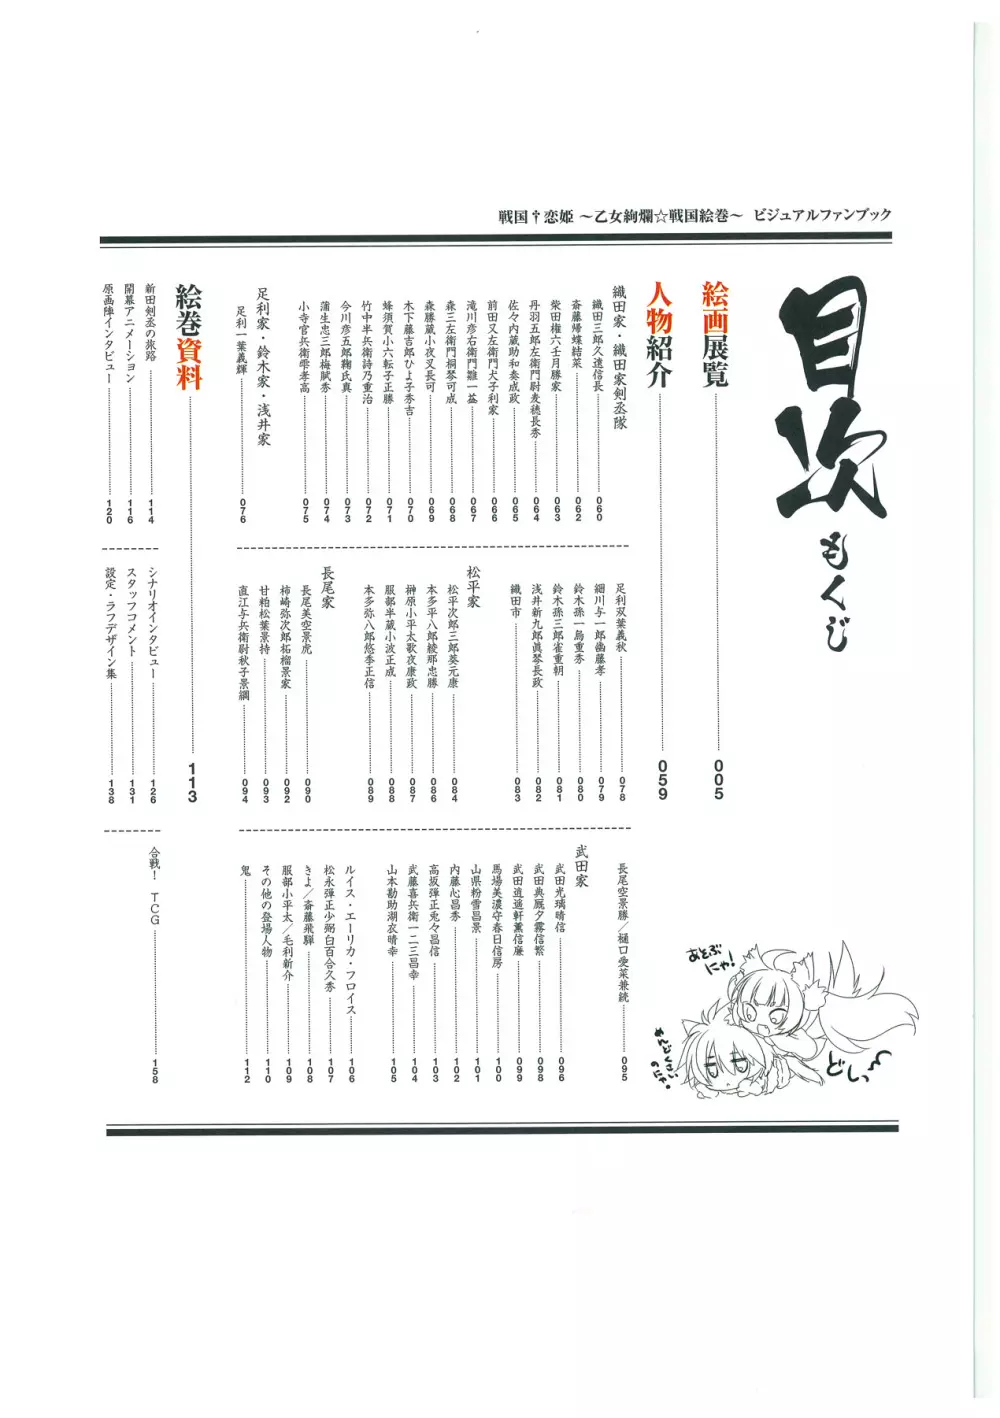 戦国†恋姫 ～乙女絢爛☆戦国絵巻～ ビジュアルファンブック
目次
もくじ
絵画展覧 005
人物紹介 059
織田家・織田家剣丞隊
織田三郎久遠信長 060
斎藤帰蝶結菜 062
柴田権六壬月勝家 063
丹羽五郎左衛門尉麦穂長秀 064
佐々内蔵助和奏成政 065
前田又左衛門犬子利家 066
滝川彦右衛門雛一益 067
森三左衛門桐琴可成 068
森勝蔵小夜叉長可 069
木下藤吉郎ひよ子秀吉 070
蜂須賀小六転子正勝 071
竹中半兵衛詩乃重治 072
今川彦五郎鞠氏真 073
蒲生忠三郎梅賦秀 074
小寺官兵衛雫孝高 075
足利家・鈴木家・浅井家
足利一葉義輝 076
足利双葉義秋 078
細川与一郎幽藤孝 079
鈴木孫一烏重秀 080
鈴木孫三郎雀重朝 081
浅井新九郎眞琴長政 082
織田市 083
松平家
松平次郎三郎葵元康 084
本多平八郎綾那忠勝 086
榊原小平太歌夜康政 087
服部半蔵小波正成 088
本多弥八郎悠季正信 089
長尾家
長尾美空景虎 090
柿崎弥次郎柘榴景家 092
甘粕松葉景持 093
直江与兵衛尉秋子景綱 094
長尾空景勝／樋口愛菜兼続 095
武田家
武田光璃晴信 096
武田典厩夕霧信繁 098
武田逍遥軒薫信廉 099
馬場美濃守春日信房 100
山県粉雪昌景 101
内藤心昌秀 102
高坂弾正兎々昌信 103
武藤喜兵衛一二三昌幸 104
山本勘助湖衣晴幸 105
ルイス・エーリカ・フロイス 106
松永弾正少弼白百合久秀 107
きよ／斎藤飛騨 108
服部小平太／毛利新介 109
その他の登場人物 110
鬼 112
絵巻資料 113
新田剣丞の旅路 114
開幕アニメーション 116
原画陣インタビュー 120
シナリオインタビュー 126
スタッフコメント 131
設定・ラフデザイン集 138
合戦！ TCG 158
あそぶにゃ！
めんどくさいのにゃ。
どしっ〜